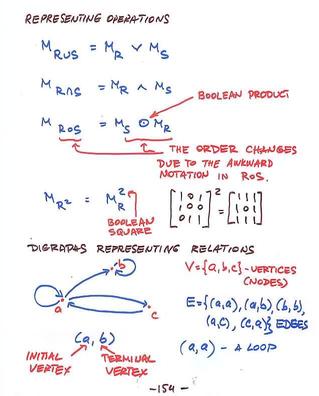 REPRESENTING OPERATIONS
M R∪S = M R ∨ M S
M R∩S = M R ∧ M S
BOOLEAN PRODUCT
M R∘S = M S ⊙ M R
THE ORDER CHANGES
DUE TO THE AWKWARD
NOTATION IN R∘S.
M R² = M R ² [1 0 1
1 0 0
0 1 1]² = [1 1 1
1 0 1
1 1 1]
BOOLEAN
SQUARE
DIGRAPHS REPRESENTING RELATIONS
a b c
V={a,b,c} - VERTICES
(NODES)
E={(a,a), (a,b), (b,b),
(a,c), (c,a)} EDGES
(a,b)
(a,a) - A LOOP
INITIAL
VERTEX
TERMINAL
VERTEX
-154-